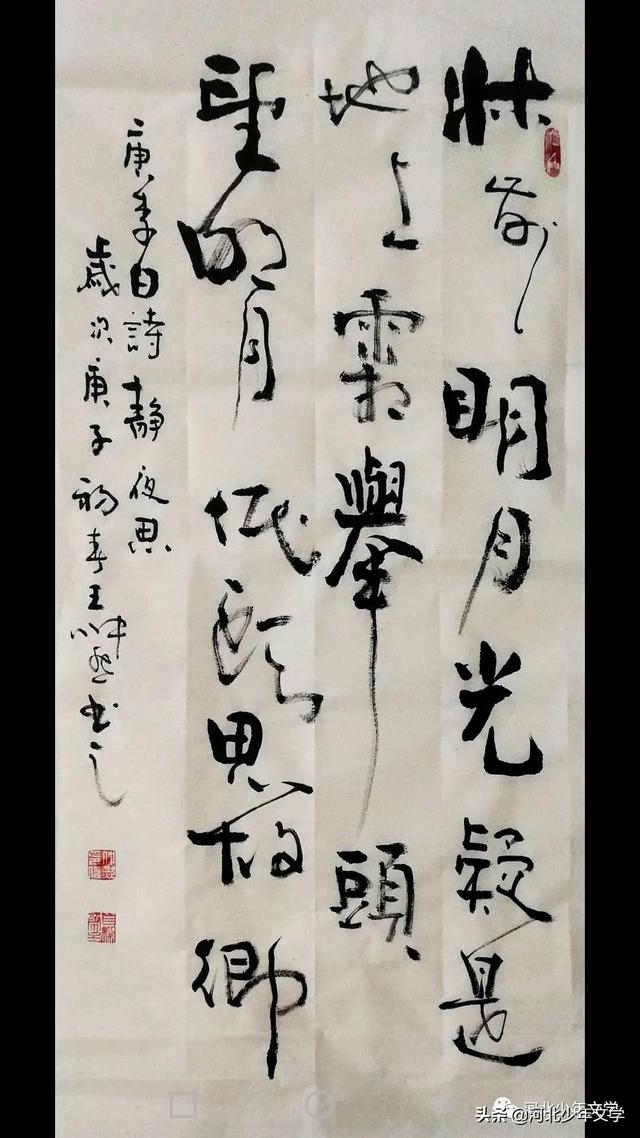 牀前明月光疑是
地上霜舉頭
望明月低頭思故鄉
唐李白詩靜夜思
歲次庚子初春王书之
河北少年文学
头条@河北少年文学